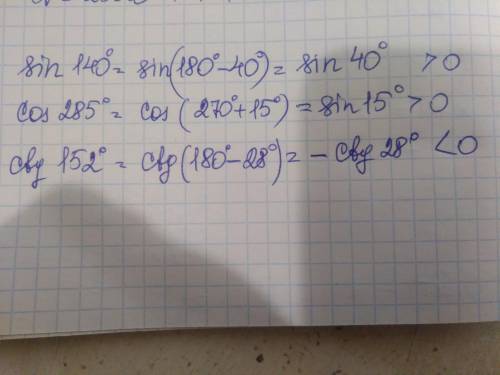 sin 140° = sin(180°-40°) = sin 40° >0
cos 285° = cos (270°+15°) = sin 15° >0
ctg 152° = ctg(180°-28°) = - ctg 28° <0